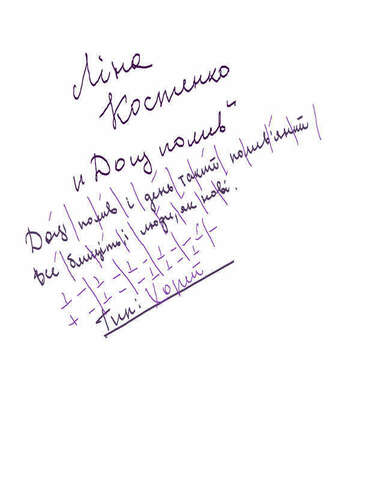 Ліна
Костенко
"Дощ полив"
Дощ полив і день такий полив'яний
Все блищить і люди, як нові.
⊥ - | ⊥ - | ⊥ - | ⊥ - | ⊥
Тип: Хорей